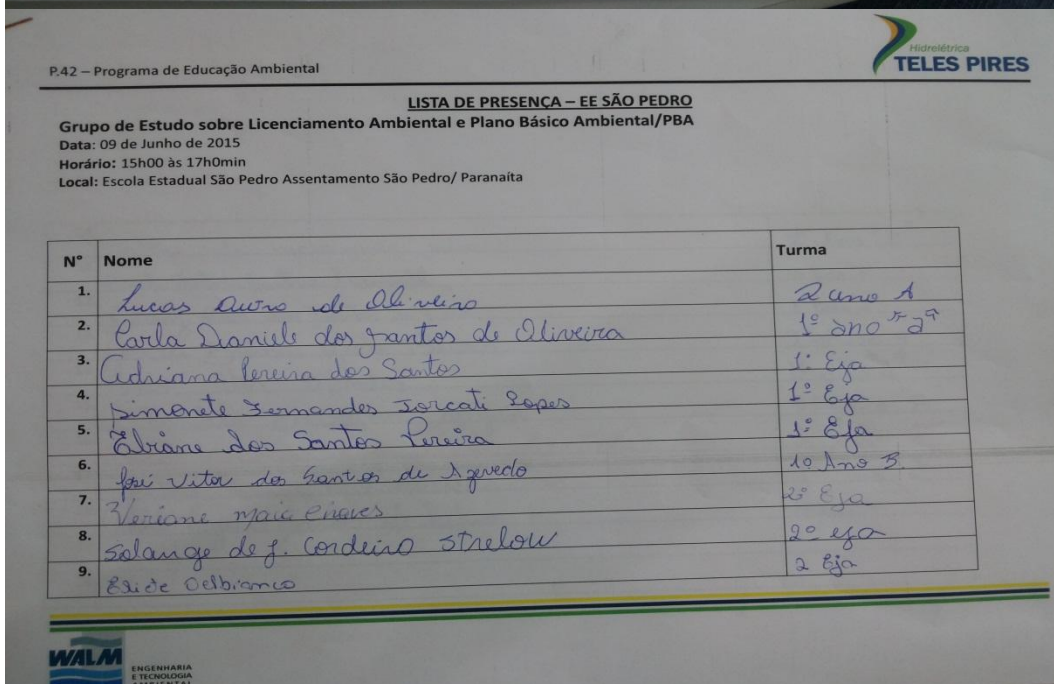 Hidrelétrica
TELES PIRES
P.42 – Programa de Educação Ambiental
LISTA DE PRESENÇA – EE SÃO PEDRO
Grupo de Estudo sobre Licenciamento Ambiental e Plano Básico Ambiental/PBA
Data: 09 de Junho de 2015
Horário: 15h00 às 17h0min
Local: Escola Estadual São Pedro Assentamento São Pedro/ Paranaíta
N° Nome Turma
1. Lucas de Oliveira 2 ano A
2. Carla Daniele dos Santos de Oliveira 1º ano
3. Adriana Pereira dos Santos 1º Eja
4. Simonete Fernandes Lopes 1º Eja
5. dos Santos Pereira 1º Eja
6. José Vitor dos Santos de Azevedo 1o Ano B
7. Maia 2º Eja
8. Solange de J. Cordeiro Strelow 2º eja
9. Delbianco 2 Eja
WALM
ENGENHARIA
E TECNOLOGIA
AMBIENTAL